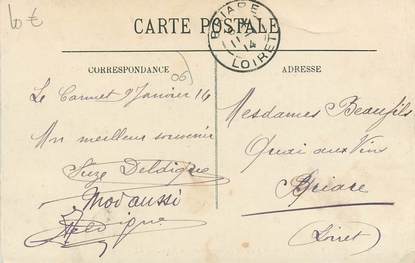 10 €
CARTE POSTALE
BRIARE
11
14
LOIRET
CORRESPONDANCE
ADRESSE
06
Le Cannet 9 Janvier 14
Mon meilleur souvenir
Suze Deldique
Moi aussi
Deldique
Mesdames Beaufils
Quai aux Vins
Briare
(Loiret)